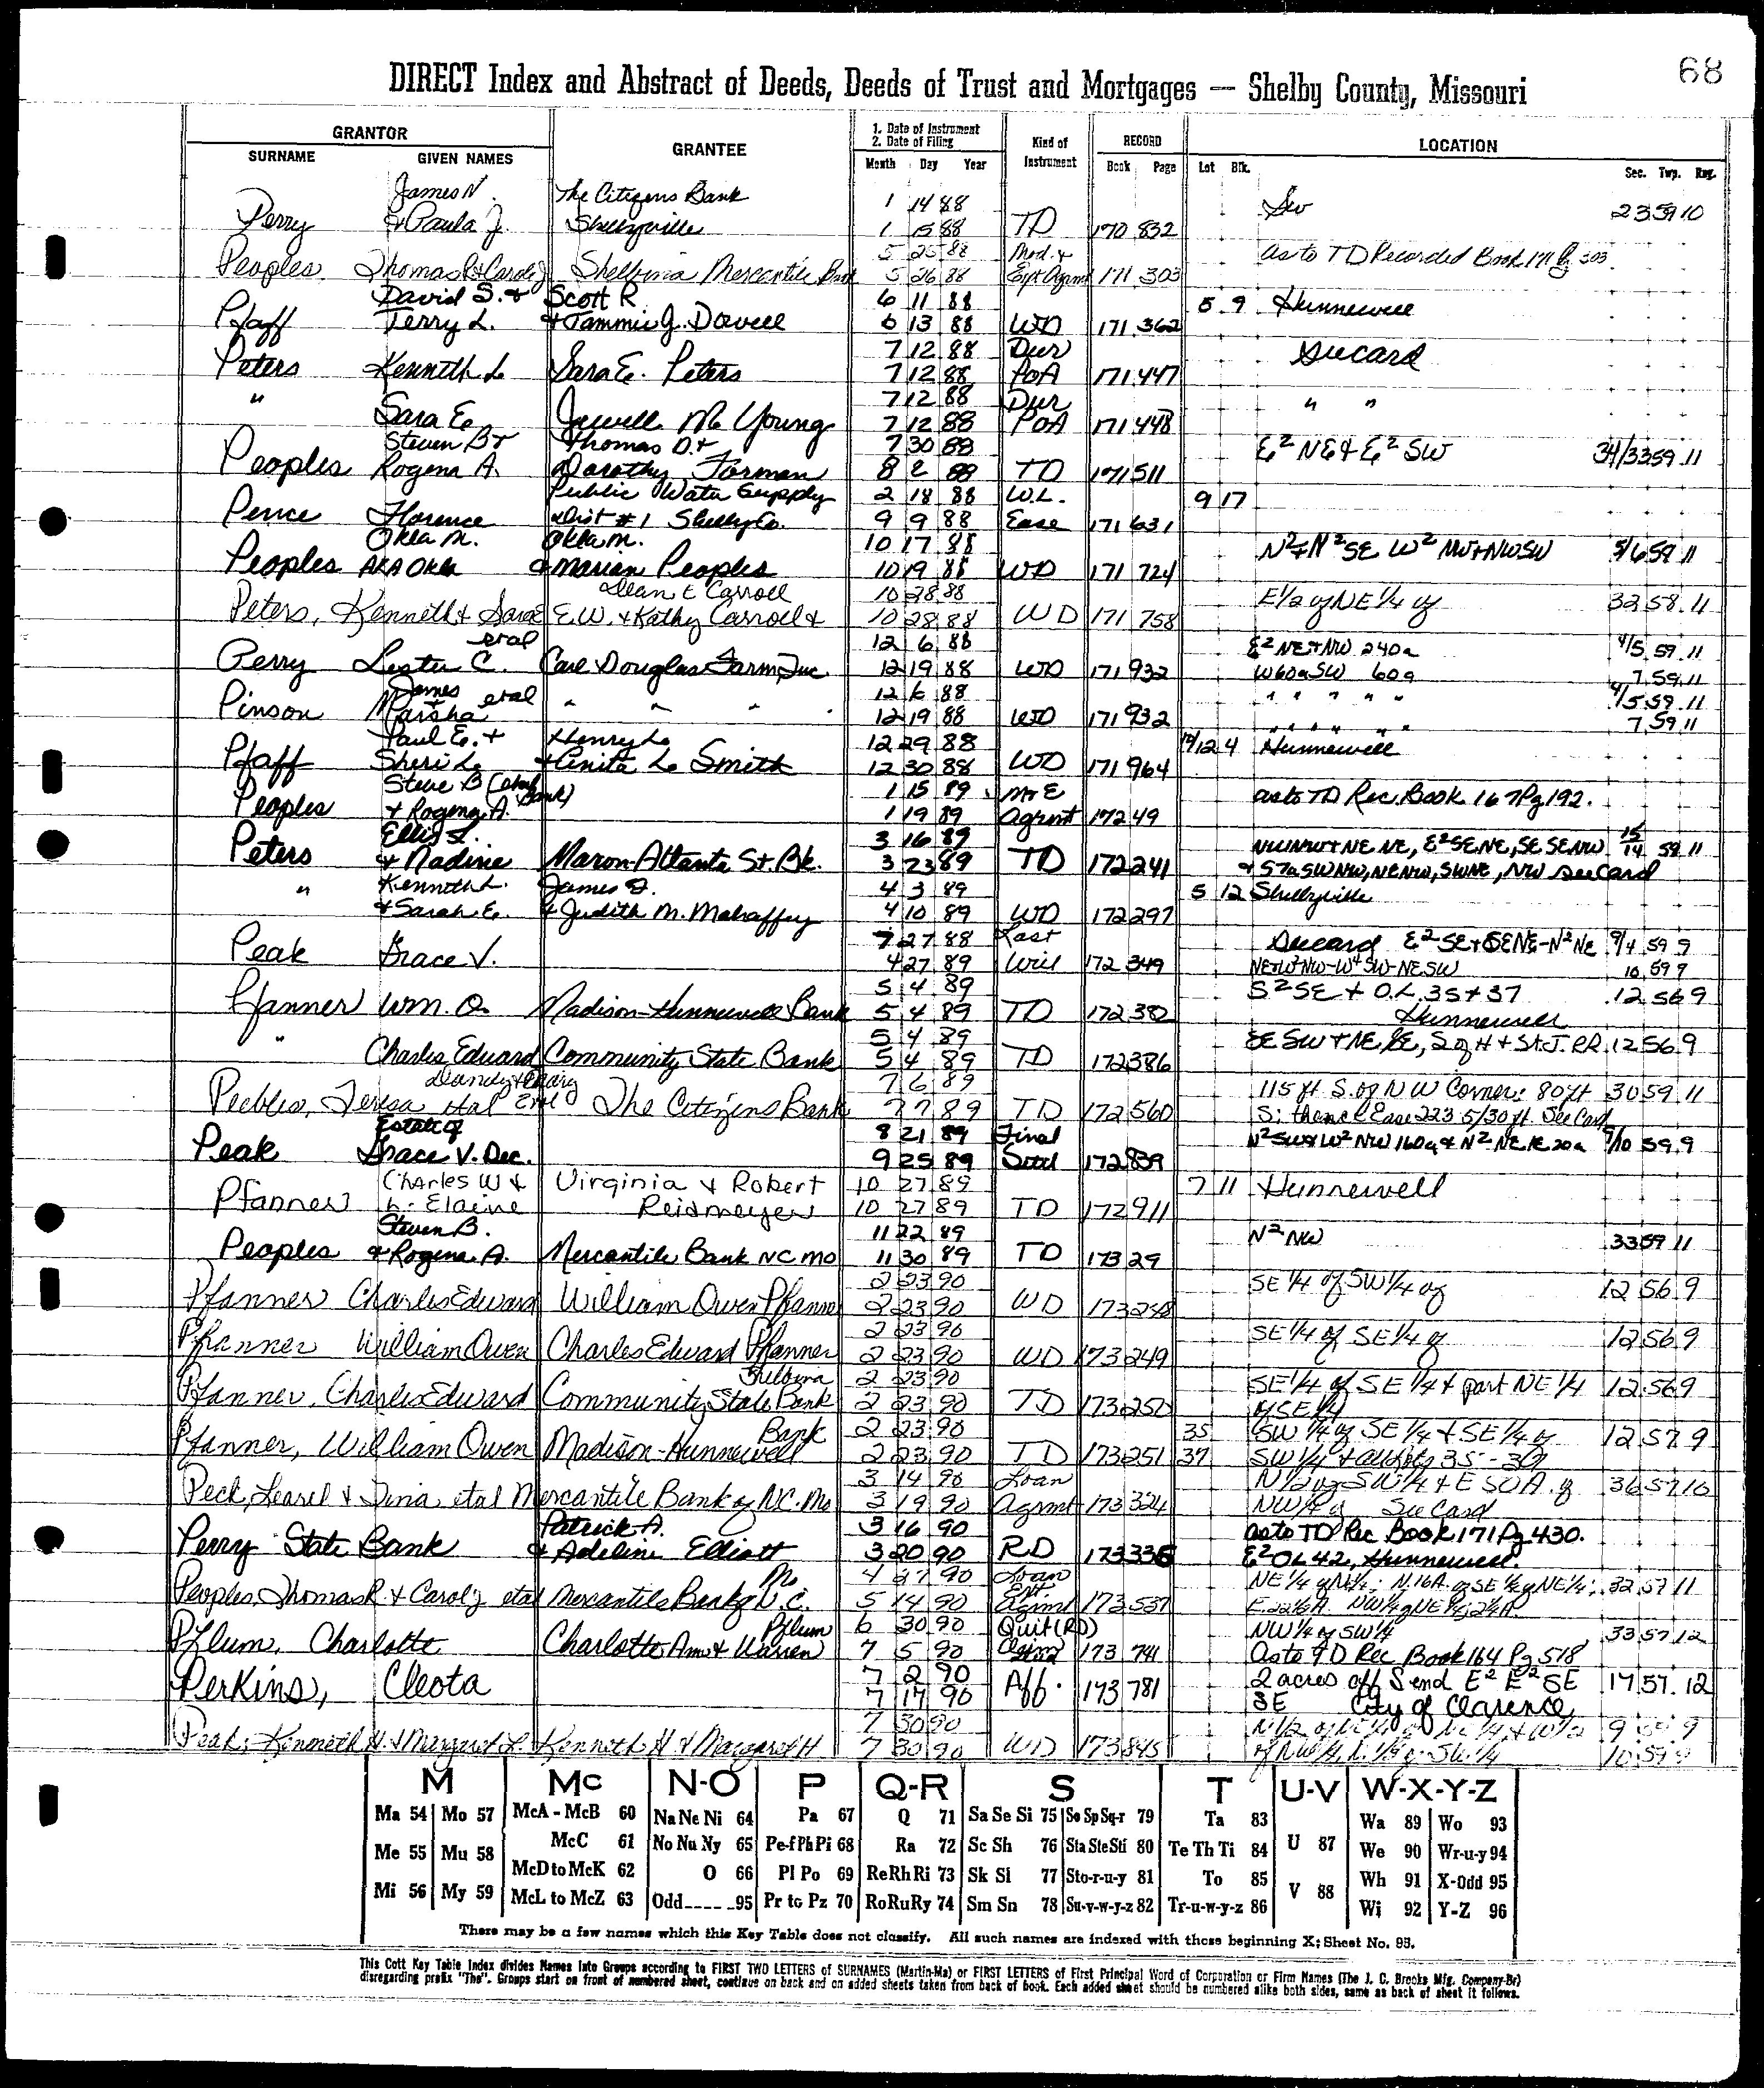 68
DIRECT Index and Abstract of Deeds, Deeds of Trust and Mortgages — Shelby County, Missouri
GRANTOR GRANTEE 1. Date of Instrument 2. Date of Filing Kind of Instrument RECORD LOCATION
SURNAME GIVEN NAMES Month Day Year Book Page Lot Blk. Sec. Twp. Rng.
James N. The Citizens Bank 1 14 88
Perry & Paula J. Shelbyville 1 15 88 TD 170 832 23 59 10
5 25 88 Mod. & as to TD Recorded Book 171 Pg 303
Peoples Thomas R & Carol J Shelbina Mercantile Bank 5 26 88 Ext Agrm 171 303
David S. & Scott R. 6 11 88 5 9 Hunnewell
Pfaff Terry L. & Tammie J. Dowell 6 13 88 WD 171 362
7 12 88 Dur See card
Peters Kenneth L Sara E. Peters 7 12 88 POA 171 447
" 7 12 88 Dur " "
Sara E. Jewell M. Young 7 12 88 POA 171 448
Steven B & Thomas D. & 7 30 88 E² NE & E² SW 34/33 59 11
Peoples Rogena A. Dorothy Forman 8 2 88 TD 171 511
Public Water Supply 2 18 88 W.L. 9 17
Pence Florence Dist #1 Shelby Co. 9 9 88 Ease 171 631
Okla M. Okla M. 10 17 88 N² & N² SE W² NW & NWSW 5/6 59 11
Peoples AKA Okla & Marian Peoples 10 19 88 WD 171 724
Dean E Carroll 10 28 88 E 1/2 of NE 1/4 of 32 58 11
Peters, Kenneth & Sara E.W. & Kathy Carroll & 10 28 88 WD 171 758
etal 12 6 88 E² NE & NW 240a 4/5 59 11
Perry Lester C. Carl Douglas Farm Inc. 12 19 88 WD 171 932 W60a SW 60a 7 59 11
James etal 12 6 88 " " " " " 4/5 59 11
Pinson & Marsha " " " 12 19 88 WD 171 932 " " " " " 7 59 11
Paul E. & Henry L. 12 29 88 12 4 Hunnewell
Pfaff Sheri L. & Anita L. Smith 12 30 88 WD 171 964
Steve B (etal 1 15 89 M & E as to TD Rec. Book 167 Pg 192.
Peoples & Rogena A. Bank) 1 19 89 Agrmt 172 49
Ellis L. 3 16 89 NWNW & NE NE, E² SE NE, SE SENW 15/14 59 11
Peters & Nadine Macon-Atlanta St. Bk. 3 23 89 TD 172 241 & 57a SWNW, NENW, SWNE, NW See Card
" Kenneth L. James D. 4 3 89 5 12 Shelbyville
& Sarah E. & Judith M. Mahaffey 4 10 89 WD 172 297
7 27 88 Last See card E² SE & SENE - N² NE 9/4 59 9
Peak Grace V. 4 27 89 Will 172 349 10 59 9
5 4 89 S² SE & O.L. 35 & 37 12 56 9
Pfanner Wm. O. Madison-Hunnewell Bank 5 4 89 TD 172 382 Hunnewell
" 5 4 89 SE SW & NE SE, S of H & St. J. RR 12 56 9
Charles Edward Community State Bank 5 4 89 TD 172 386
7 6 89 115 ft S. of NW Corner: 80 ft 30 59 11
Peebles, Teresa etal The Citizens Bank 7 7 89 TD 172 560 S; thence East 223 5/30 ft. See Card
Estate of 8 21 89 Final 9/10 59 9
Peak Grace V. Dec. 9 25 89 Settl 172 839
Charles W & Virginia & Robert 10 27 89 7 11 Hunnewell
Pfanner L. Elaine Reidmeyer 10 27 89 TD 172 911
Steven B. 11 22 89 N² NW 33 59 11
Peoples & Rogena A. Mercantile Bank NC MO 11 30 89 TD 173 29
2 23 90 SE 1/4 of SW 1/4 of 12 56 9
Pfanner Charles Edward William Owen Pfanner 2 23 90 WD 173 248
2 23 90 SE 1/4 of SE 1/4 of 12 56 9
Pfanner William Owen Charles Edward Pfanner 2 23 90 WD 173 249
Shelbina 2 23 90 SE 1/4 of SE 1/4 & part NE 1/4 12 56 9
Pfanner, Charles Edward Community State Bank 2 23 90 TD 173 250 of SE 1/4
Bank 2 23 90 35 SW 1/4 of SE 1/4 & SE 1/4 of 12 57 9
Pfanner, William Owen Madison-Hunnewell 2 23 90 TD 173 251 37 SW 1/4 & outlots 35-37
3 14 90 Loan N 1/2 of SW 1/4 & E 50A. of 36 57 10
Peck, Learel & Tina etal Mercantile Bank of N.C. Mo 3 19 90 Agrmt 173 324 NW 1/4 of See Card
Patrick A. 3 16 90 as to TD Rec Book 171 Pg 430.
Perry State Bank & Adeline Elliott 3 20 90 RD 173 336 E² OL 42, Hunnewell.
Mo 4 27 90 Loan NE 1/4 of N 1/4; N. 16A. of SE 1/4 of NE 1/4; 32 57 11
Peoples, Thomas R. & Carol J etal Mercantile Bank of N.C. 5 14 90 Ext Agrmt 173 537
Pflum 6 30 90 Quit (RD) NW 1/4 of SW 1/4 33 57 12
Pflum, Charlotte Charlotte Ann & Warren 7 5 90 Claim 173 741 As to TD Rec Book 164 Pg 518
7 2 90 2 acres off S end E² E² SE 17 57 12
Perkins, Cleota 7 17 90 Aff. 173 781 SE City of Clarence
7 30 90 9 59 9
Peak, Kenneth H. & Margaret L. Kenneth H & Margaret H 7 30 90 WD 173 845 10 59 9
M Mc N-O P Q-R S T U-V W-X-Y-Z
Ma 54 Mo 57 McA - McB 60 Na Ne Ni 64 Pa 67 Q 71 Sa Se Si 75 So Sp Sq-r 79 Ta 83 Wa 89 Wo 93
Me 55 Mu 58 McC 61 No Nu Ny 65 Pe-f Ph Pi 68 Ra 72 Sc Sh 76 Sta Ste Sti 80 Te Th Ti 84 U 87 We 90 Wr-u-y 94
McD to McK 62 O 66 Pl Po 69 Re Rh Ri 73 Sk Sl 77 Sto-r-u-y 81 To 85 Wh 91 X-Odd 95
Mi 56 My 59 McL to McZ 63 Odd 95 Pr to Pz 70 Ro Ru Ry 74 Sm Sn 78 Su-v-w-y-z 82 Tr-u-w-y-z 86 V 88 Wi 92 Y-Z 96
There may be a few names which this Key Table does not classify. All such names are indexed with those beginning X; Sheet No. 95.
This Cott Key Table Index divides Names into Groups according to FIRST TWO LETTERS of SURNAMES (Martin-Ma) or FIRST LETTERS of First Principal Word of Corporation or Firm Names (The J. C. Brooks Mfg. Company-Br)
disregarding prefix "The". Groups start on front of numbered sheet, continue on back and on added sheets taken from back of book. Each added sheet should be numbered alike both sides, same as back of sheet it follows.